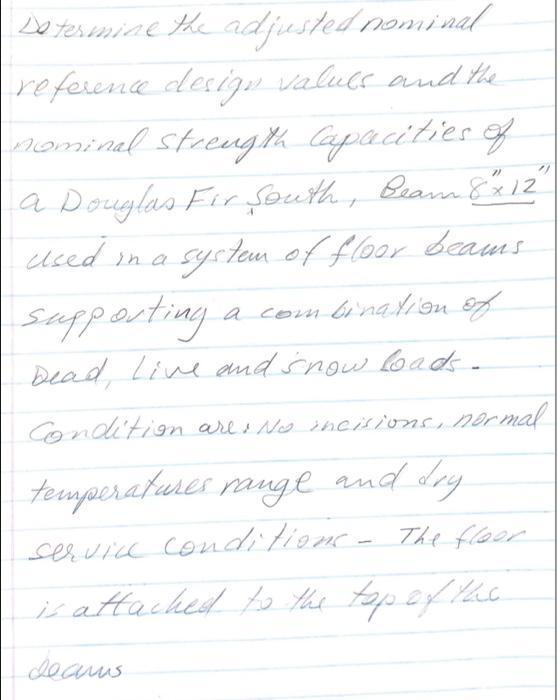 Determine the adjusted nominal
reference design values and the
nominal strength Capacities of
a Douglas Fir South, Beam 8"x12"
used in a system of floor beams
supporting a combination of
Dead, Live and snow loads.
Condition are: No incisions, normal
temperatures range and dry
service conditions - The floor
is attached to the top of the
beams